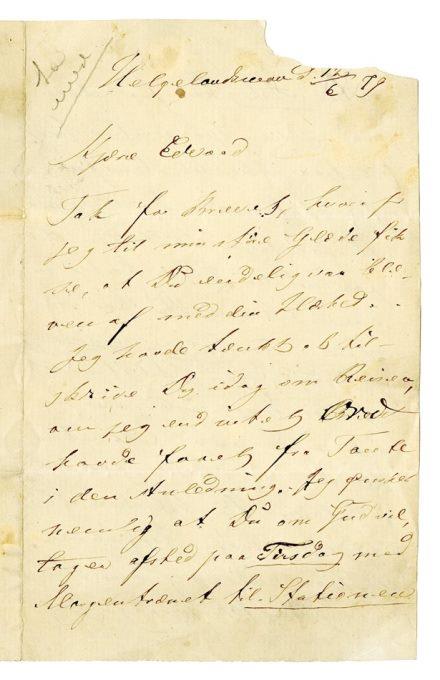 Helgelandsmoen d. 12/6 79
Kjære Edvard
Tak for Brevet, hvoraf
jeg til min store Glæde fik
se, at Du endelig var ble-
ven af med din
Jeg havde tænkt at til-
skrive Dig idag om Reisen,
om jeg end intet Ord
havde faaet fra Tante
i den Anledning. Jeg ønsker
nemlig at Du om
tager afsted paa Tirsdag med
Morgentrænet til Stationen